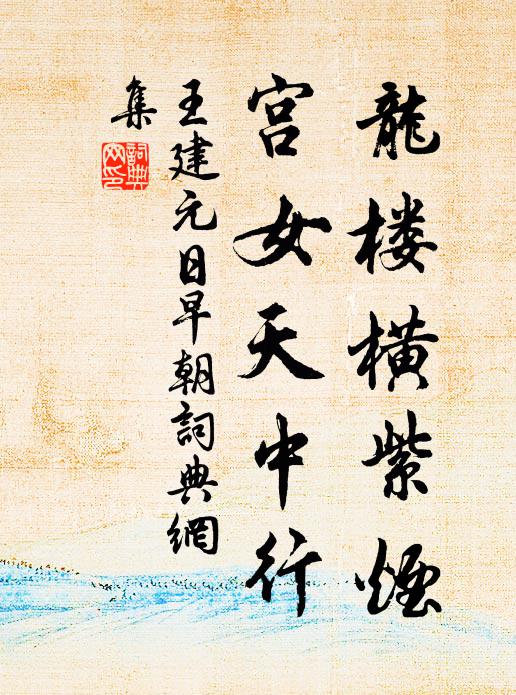 龍楼横紫煙
宮女天中行
王建元日早朝詞典網
集
詞典
网印